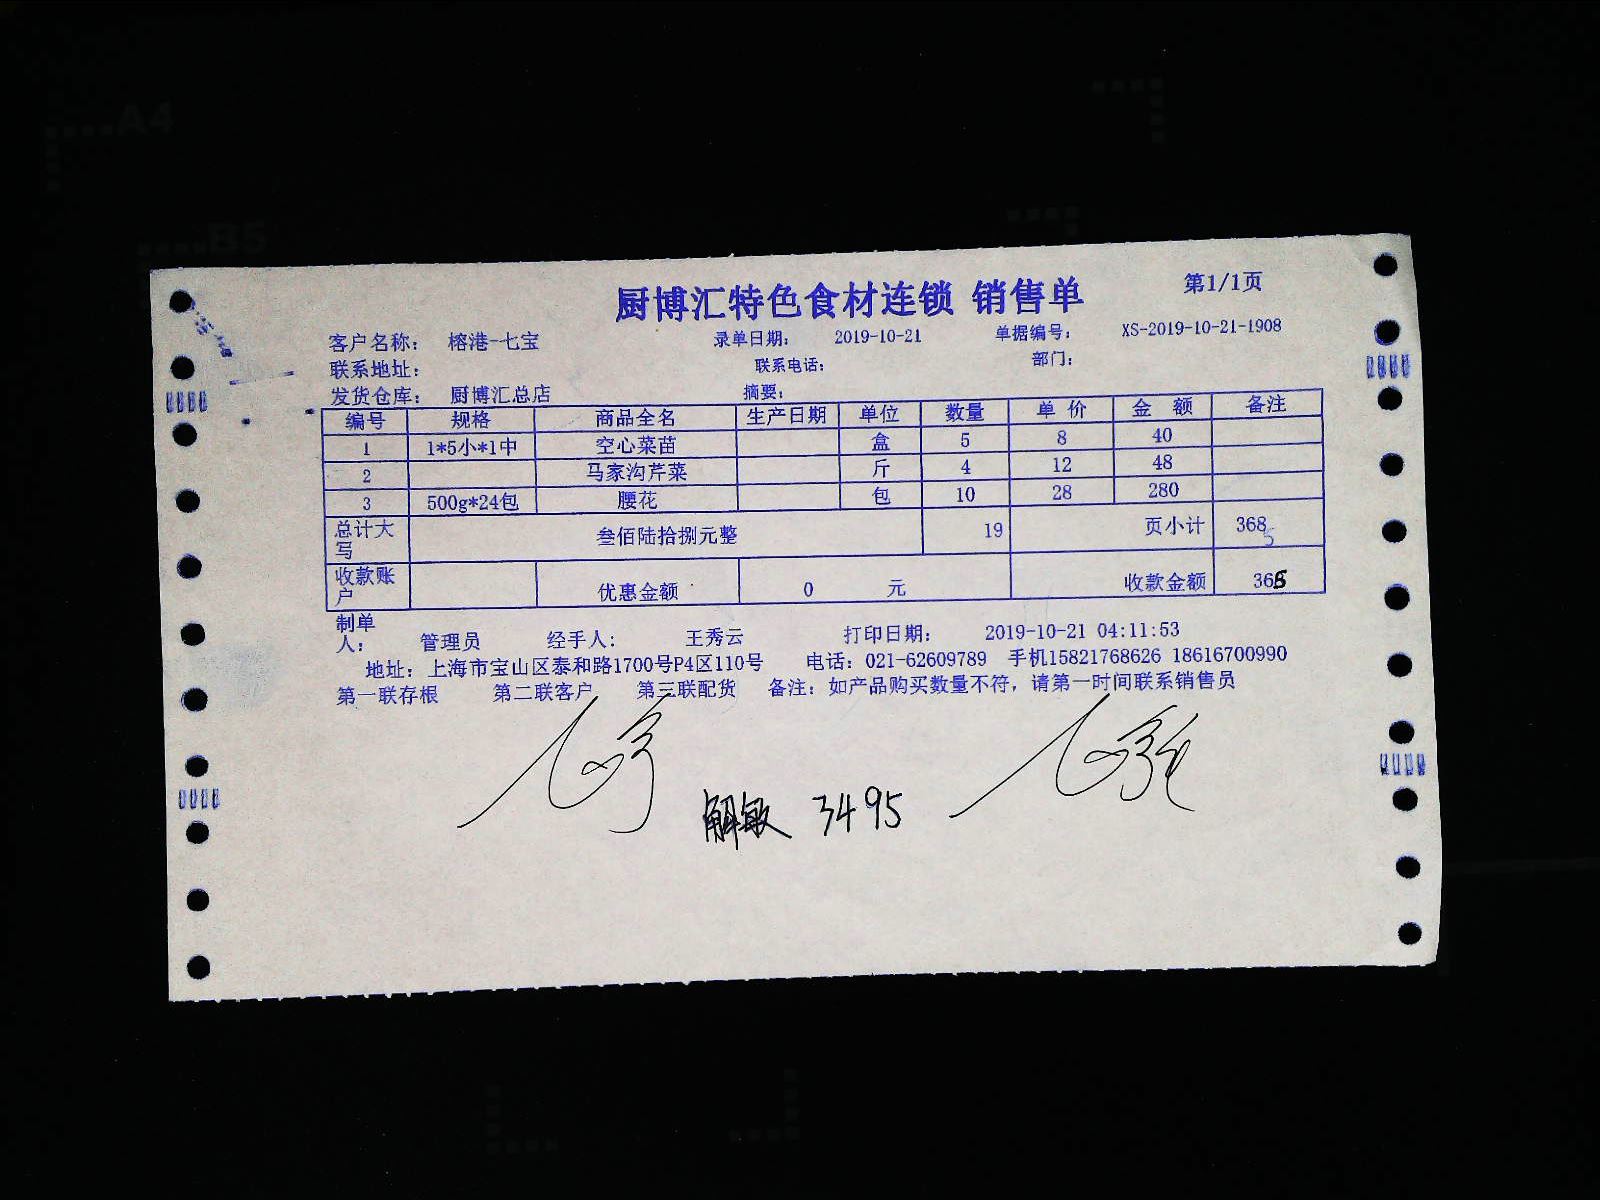 A4
B5
厨博汇特色食材连锁 销售单 第1/1页
客户名称： 榕港-七宝 录单日期： 2019-10-21 单据编号： XS-2019-10-21-1908
联系地址： 联系电话： 部门：
发货仓库： 厨博汇总店 摘要：
编号 规格 商品全名 生产日期 单位 数量 单 价 金 额 备注
1 1*5小*1中 空心菜苗 盒 5 8 40
2 马家沟芹菜 斤 4 12 48
3 500g*24包 腰花 包 10 28 280
总计大写 叁佰陆拾捌元整 19 页小计 368
5
收款账户 优惠金额 0 元 收款金额 365
制单人： 管理员 经手人： 王秀云 打印日期： 2019-10-21 04:11:53
地址：上海市宝山区泰和路1700号P4区110号 电话：021-62609789 手机15821768626 18616700990
第一联存根 第二联客户 第三联配货 备注：如产品购买数量不符，请第一时间联系销售员
解敏 3495